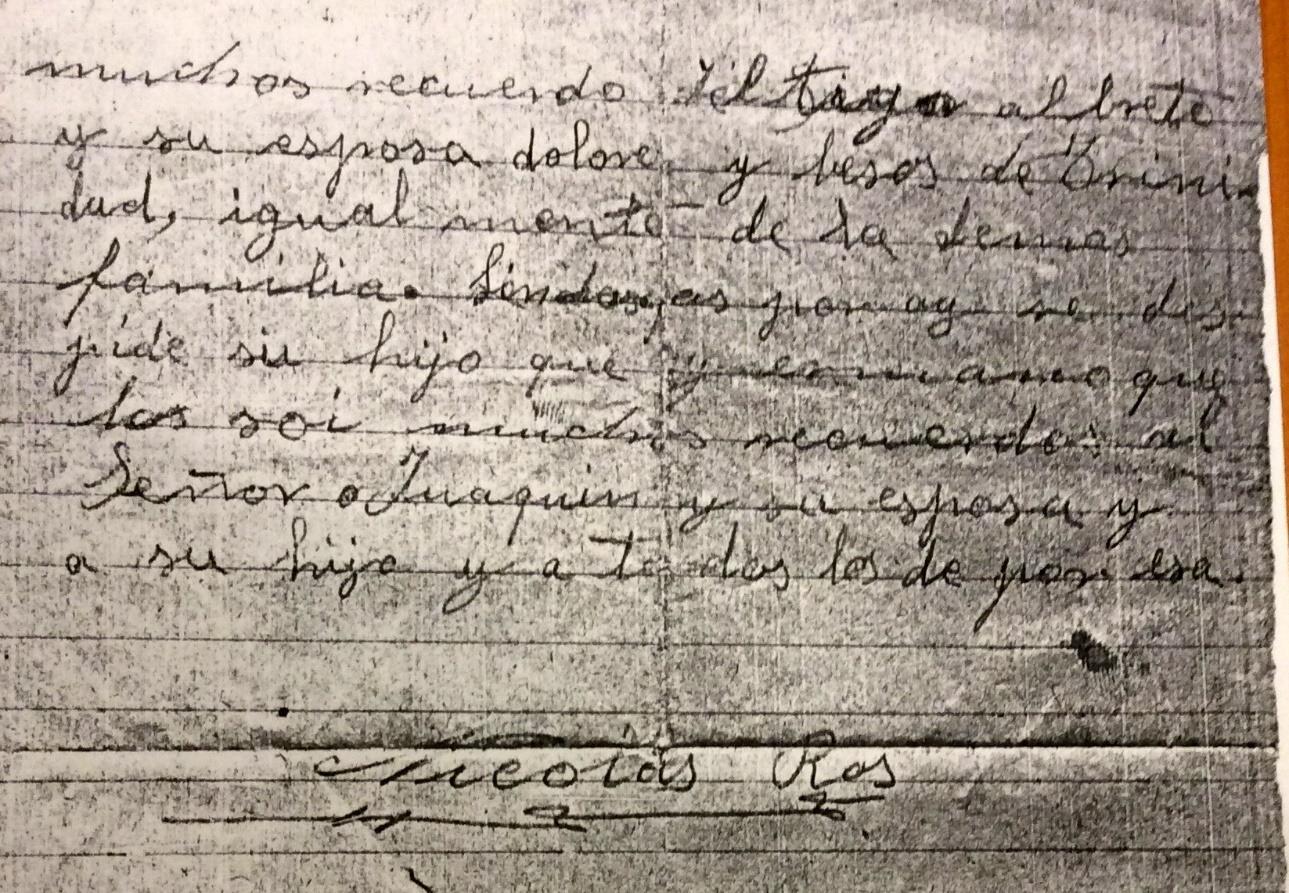 muchos recuerdo del tiyo albrete
y su esposa dolore y besos de Trini-
dad, igual mente de la demas
familia. Sin por oy se des-
pide su hijo que y ermano que
los soi muchos recuerdos al
Señor Juaquin y su esposa y
a su hijo y a to dos los de por esa.
Nicolás Ros